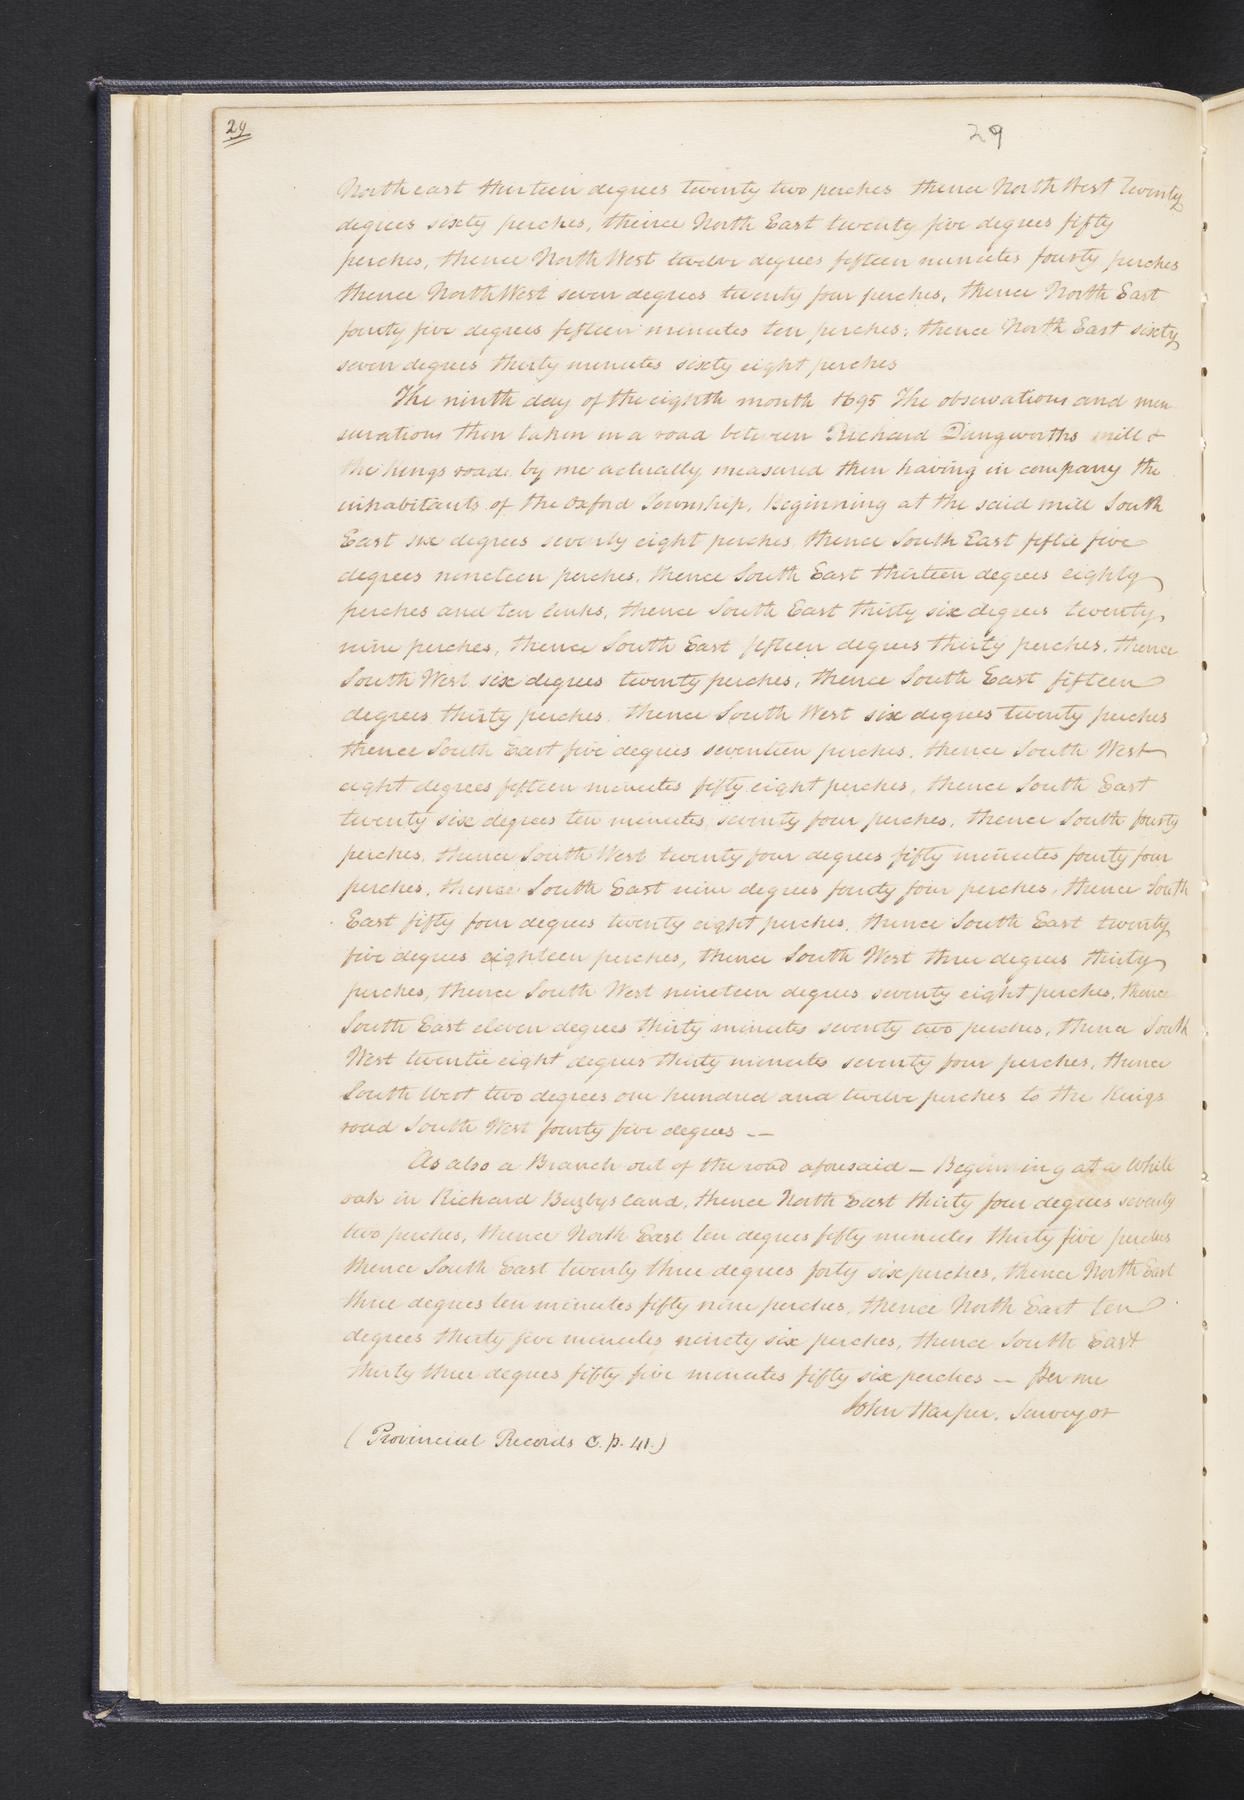 29
29
North east thirteen degrees twenty two perches thence North West Twenty
degrees sixty perches, theince North East twenty five degrees fifty
perches, thence North West twelve degrees fifteen minuites fourty perches
thence North West seven degrees twenty four perches, thence North East
fourty five degrees fifteen minuites ten perches, thence North East sixty
seven degrees thirty minuites sixty eight perches
The ninth day of the eighth month 1695 The observations and men
surations then taken in a road between Richard Dungworths mill &
the kings road by me actually measured then having in company the
inhabitants of the Oxford Township, Beginning at the said mill South
East six degrees seventy eight perches thence South East fiftie five
degrees nineteen perches, thence South East thirteen degrees eighty
perches and ten links, thence South East thirty six degrees twenty
nine perches, thence South East fifteen degrees thirty perches, thence
South West six degrees twenty perches, thence South East fifteen
degrees thirty perches, thence South West six degrees twenty perches
thence South East five degrees seventeen perches, thence South West
eight degrees fifteen minuites fifty eight perches, thence South East
twenty six degrees ten minuites, seventy four perches, thence South fourty
perches, thence South West twenty four degrees fifty minuites fourty four
perches, thence South East nine degrees fourty four perches, thence South
East fifty four degrees twenty eight perches, thence South East twenty
five degrees eighteen perches, thence South West three degrees thirty
perches, thence South West nineteen degrees seventy eight perches, thence
South East eleven degrees thirty minuites seventy two perches, thence South
West twentie eight degrees thirty minuites seventy four perches, thence
South West two degrees one hundred and twelve perches to the Kings
road South West fourty five degrees --
As also a Branch out of the road aforesaid — Beginning at a White
oak in Richard Buzbys land, thence North East thirty four degrees seventy
two perches, thence North East ten degrees fifty minuites thirty five perches
thence South East twenty three degrees forty six perches, thence North East
three degrees ten minuites fifty nine perches, thence North East ten
degrees thirty five minuites ninety six perches, thence South East
thirty three degrees fifty five minuites fifty six perches -- Per me
John Harper, Surveyor
(Provincial Records C. p. 41.)